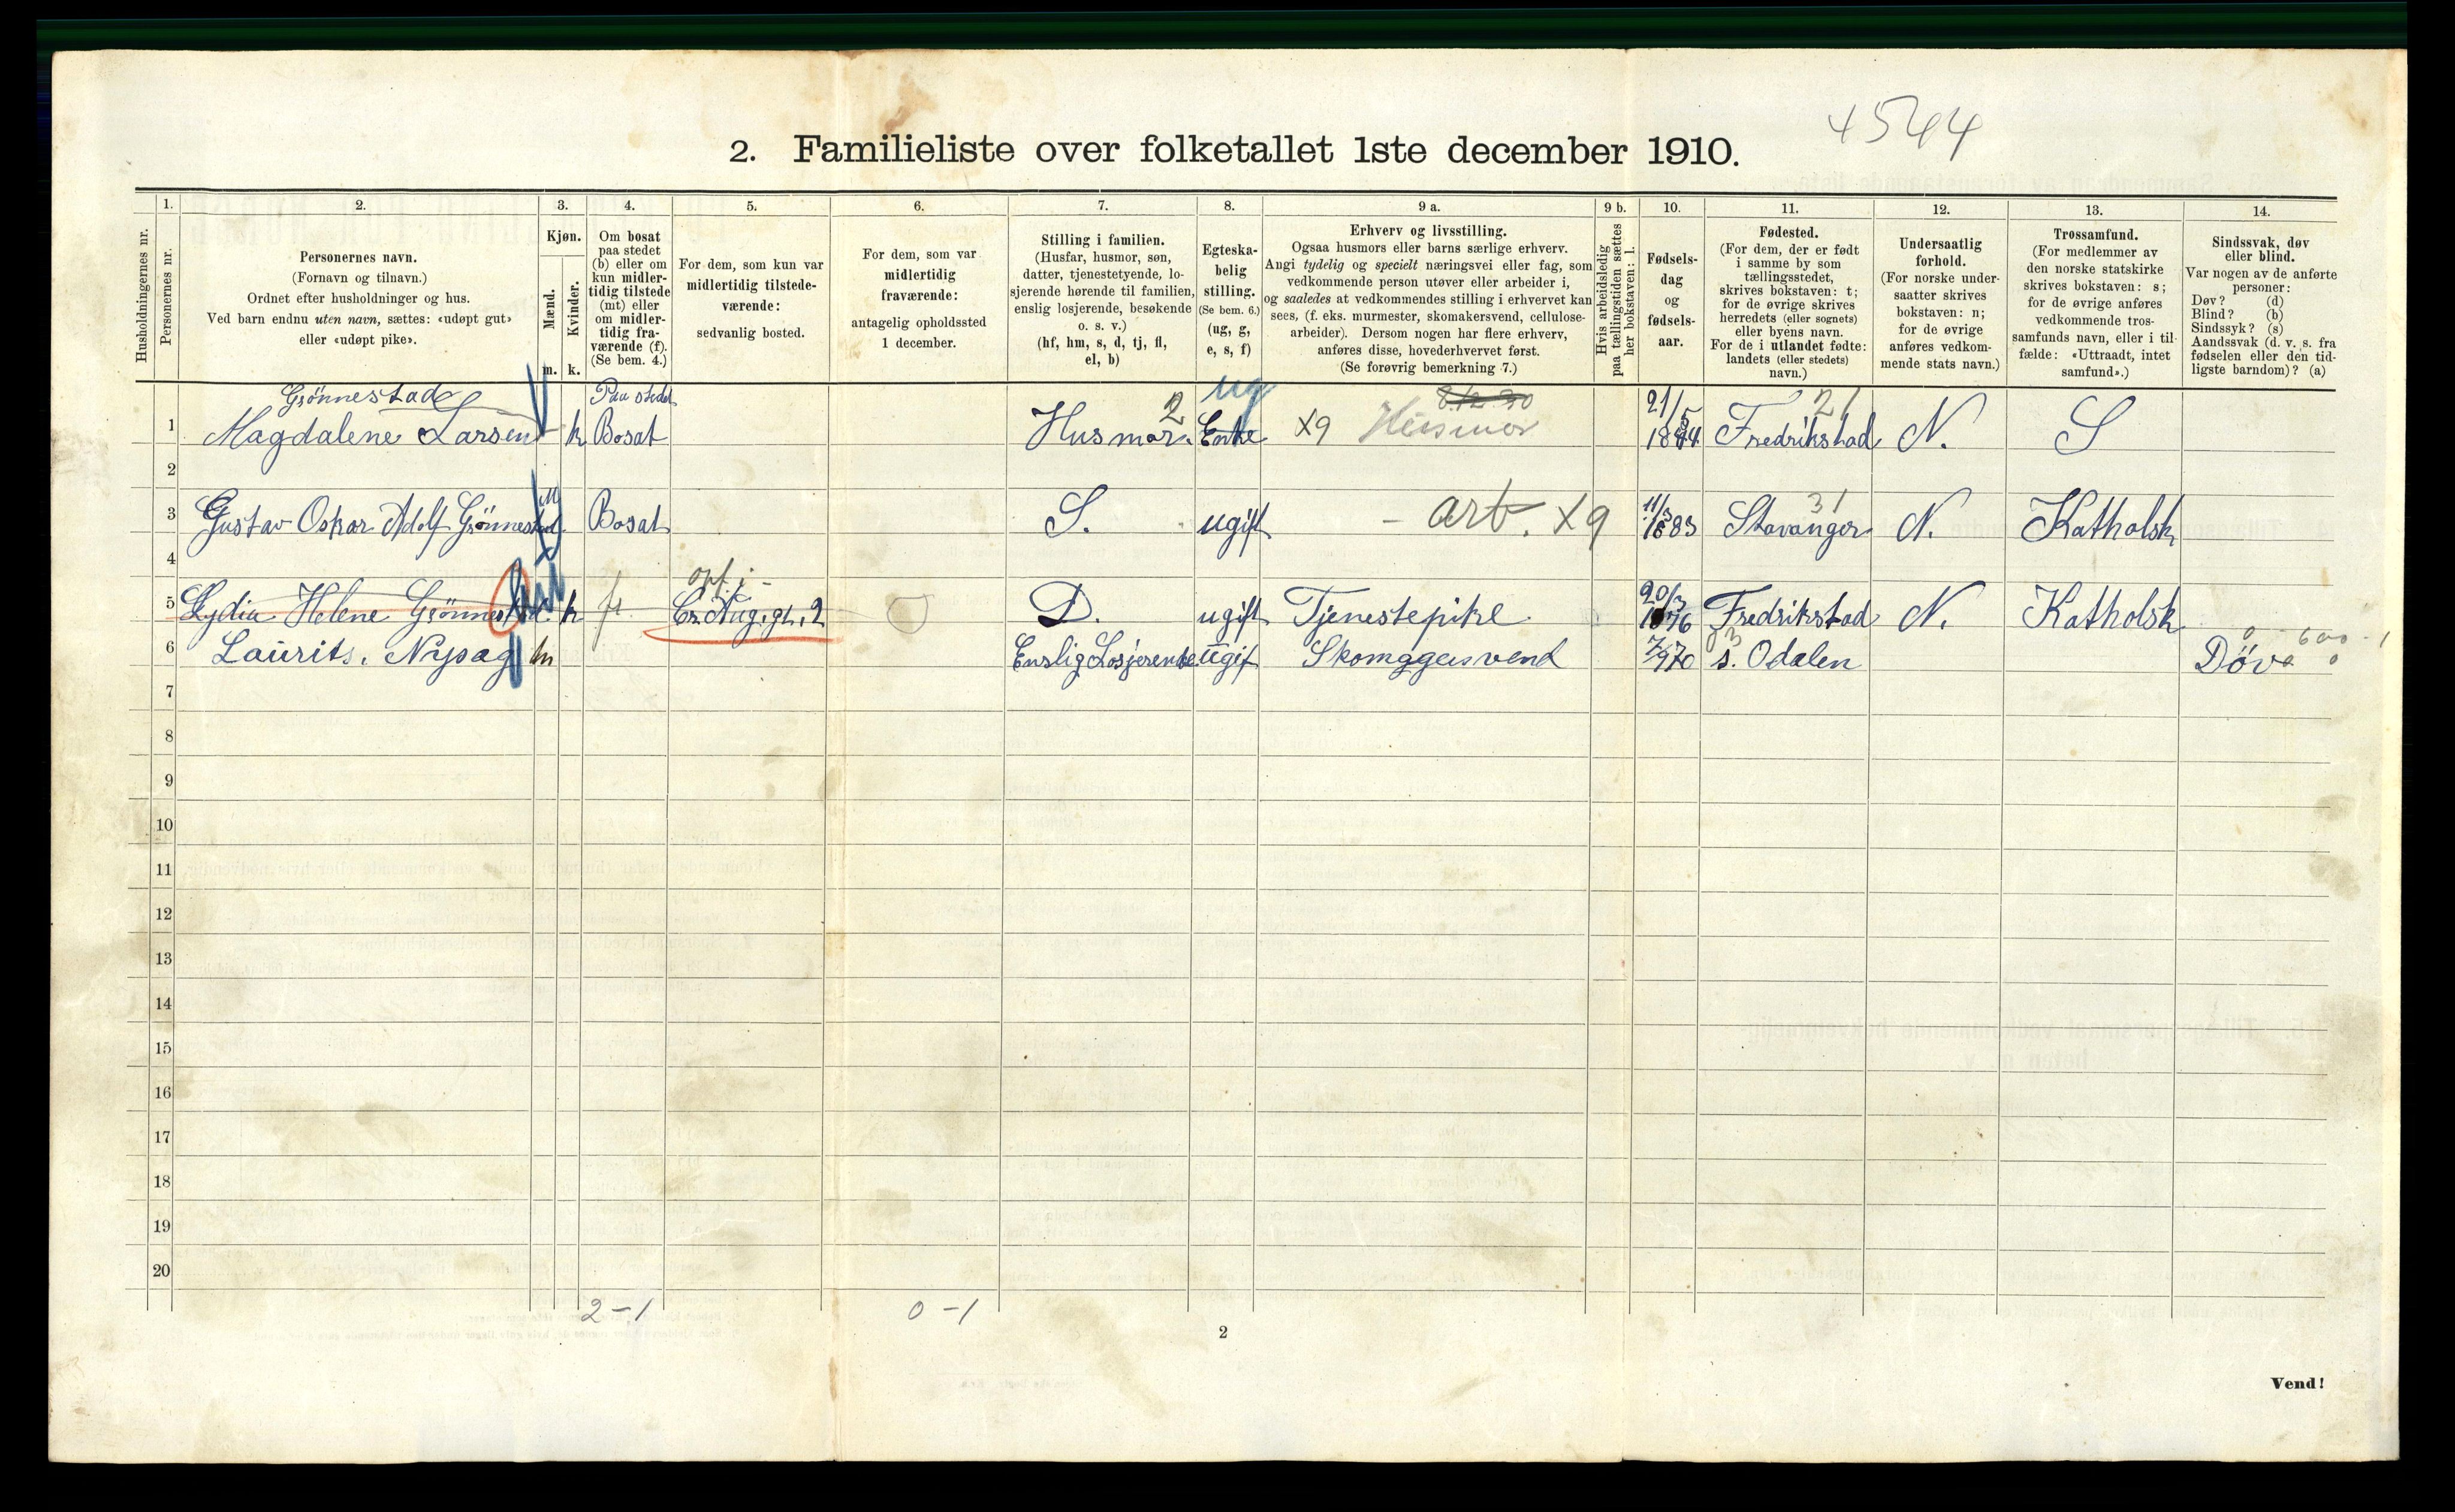 4544
2. Familieliste over folketallet 1ste december 1910.
Husholdningernes nr.
1.
Personernes nr.
2.
Personernes navn.
(Fornavn og tilnavn.)
Ordnet efter husholdninger og hus.
Ved barn endnu uten navn, sættes: «udøpt gut»
eller «udøpt pike».
3.
Kjøn.
Mænd.
Kvinder.
m. k.
4.
Om bosat
paa stedet
(b) eller om
kun midler-
tidig tilstede
(mt) eller
om midler-
tidig fra-
værende (f).
(Se bem. 4.)
5.
For dem, som kun var
midlertidig tilstede-
værende:
sedvanlig bosted.
6.
For dem, som var
midlertidig
fraværende:
antagelig opholdssted
1 december.
7.
Stilling i familien.
(Husfar, husmor, søn,
datter, tjenestetyende, lo-
sjerende hørende til familien,
enslig losjerende, besøkende
o. s. v.)
(hf, hm, s, d, tj, fl,
el, b)
8.
Egteska-
belig
stilling.
(Se bem. 6.)
(ug, g,
e, s, f)
9 a.
Erhverv og livsstilling.
Ogsaa husmors eller barns særlige erhverv.
Angi tydelig og specielt næringsvei eller fag, som
vedkommende person utøver eller arbeider i,
og saaledes at vedkommendes stilling i erhvervet kan
sees, (f. eks. murmester, skomakersvend, cellulose-
arbeider). Dersom nogen har flere erhverv,
anføres disse, hovederhvervet først.
(Se forøvrig bemerkning 7.)
9 b.
Hvis arbeidsledig
paa tællingstiden sættes
her bokstaven: l.
10.
Fødsels-
dag
og
fødsels-
aar.
11.
Fødested.
(For dem, der er født
i samme by som
tællingsstedet,
skrives bokstaven: t;
for de øvrige skrives
herredets (eller sognets)
eller byens navn.
For de i utlandet fødte:
landets (eller stedets)
navn.)
12.
Undersaatlig
forhold.
(For norske under-
saatter skrives
bokstaven: n;
for de øvrige
anføres vedkom-
mende stats navn.)
13.
Trossamfund.
(For medlemmer av
den norske statskirke
skrives bokstaven: s;
for de øvrige anføres
vedkommende tros-
samfunds navn, eller i til-
fælde: «Uttraadt, intet
samfund».)
14.
Sindssvak, døv
eller blind.
Var nogen av de anførte
personer:
Døv? (d)
Blind? (b)
Sindssyk? (s)
Aandssvak (d. v. s. fra
fødselen eller den tid-
ligste barndom)? (a)
Grönnestad Paa stedet 2 ug 8.12.90 21/5 21
1 Magdalene Larsen k Bosat Husmor. Enke X9 Husmor Fredrikstad N. S
2
3 Gustav Oskar Adolf Grönnestad Bosat S. ugift - arb. X9 11/3 1883 31 Stavanger N. Katholsk
4
opf. i -
5 Lydia Helene Grönnestad. k f. Cr. Aug. gt. 2 D. ugift Tjenestepike 20/3 1876 Fredrikstad N. Katholsk
6 Laurits. Nysag m Enslig Losjerende ugif Skomagersvend 7/9 70 03 S. Odalen Döv
7
8
9
10
11
12
13
14
15
16
17
18
19
20
2-1 0-1
2
Vend!